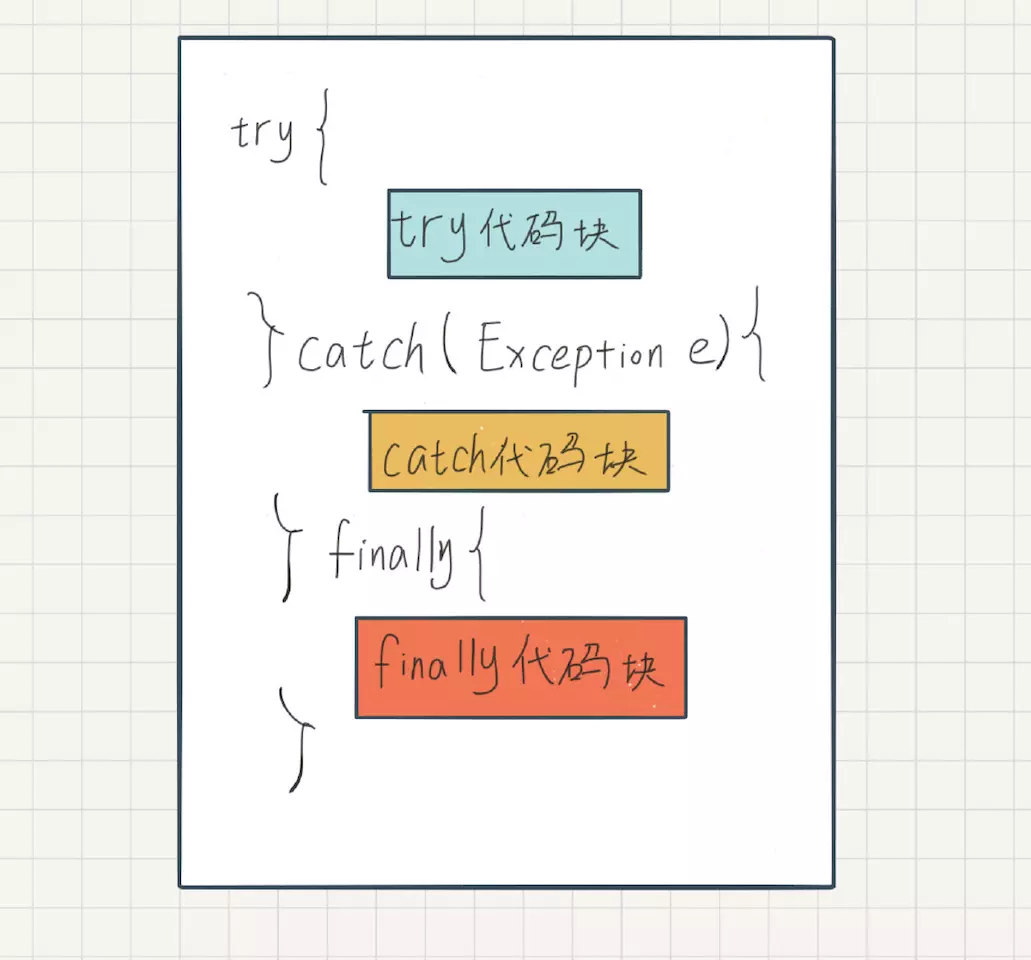 try{
try代码块
}catch(Exception e){
catch代码块
}finally{
finally代码块
}